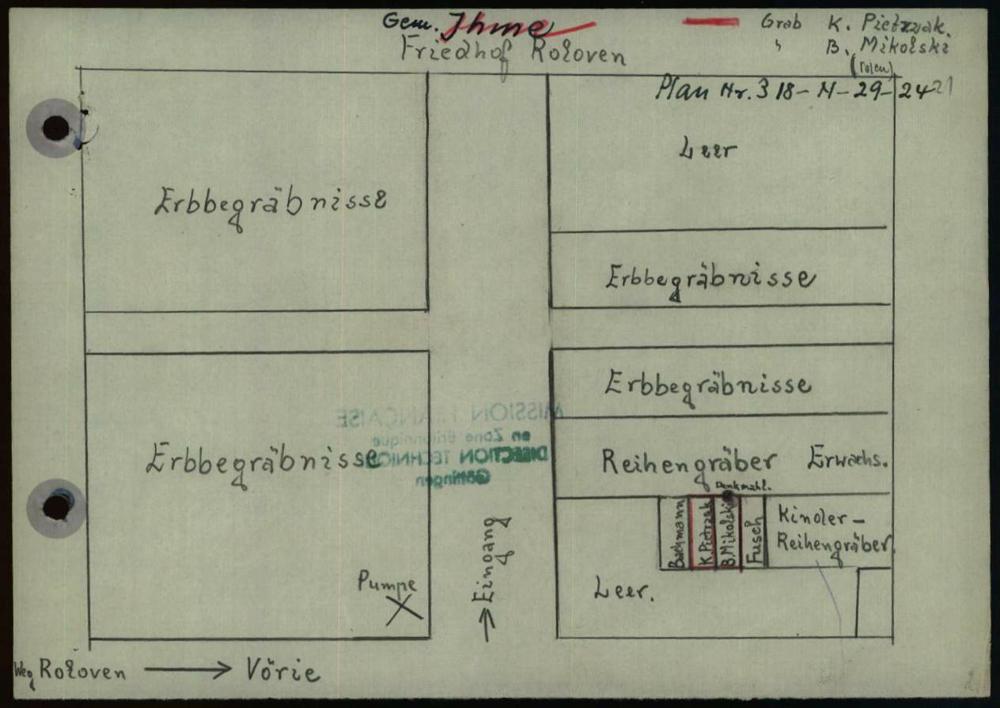 Gem. Ihme
Friedhof Roloven
Grab K. Pietrzak.
" B. Mikolski
(Polen)
Plan Nr. 318-N-29-24 21
Erbbegräbnisse
Leer
Erbbegräbnisse
Erbbegräbnisse
Reihengräber Erwachs.
Denkmahl.
Bachmann
K. Pietrzak
B. Mikolski
Fusch
Kinder-
Reihengräber
Leer.
Erbbegräbnisse
MISSION FRANÇAISE
en Zone Britannique
DIRECTION TECHNIQUE
Göttingen
Pumpe
Eingang
Weg Roloven → Vörie